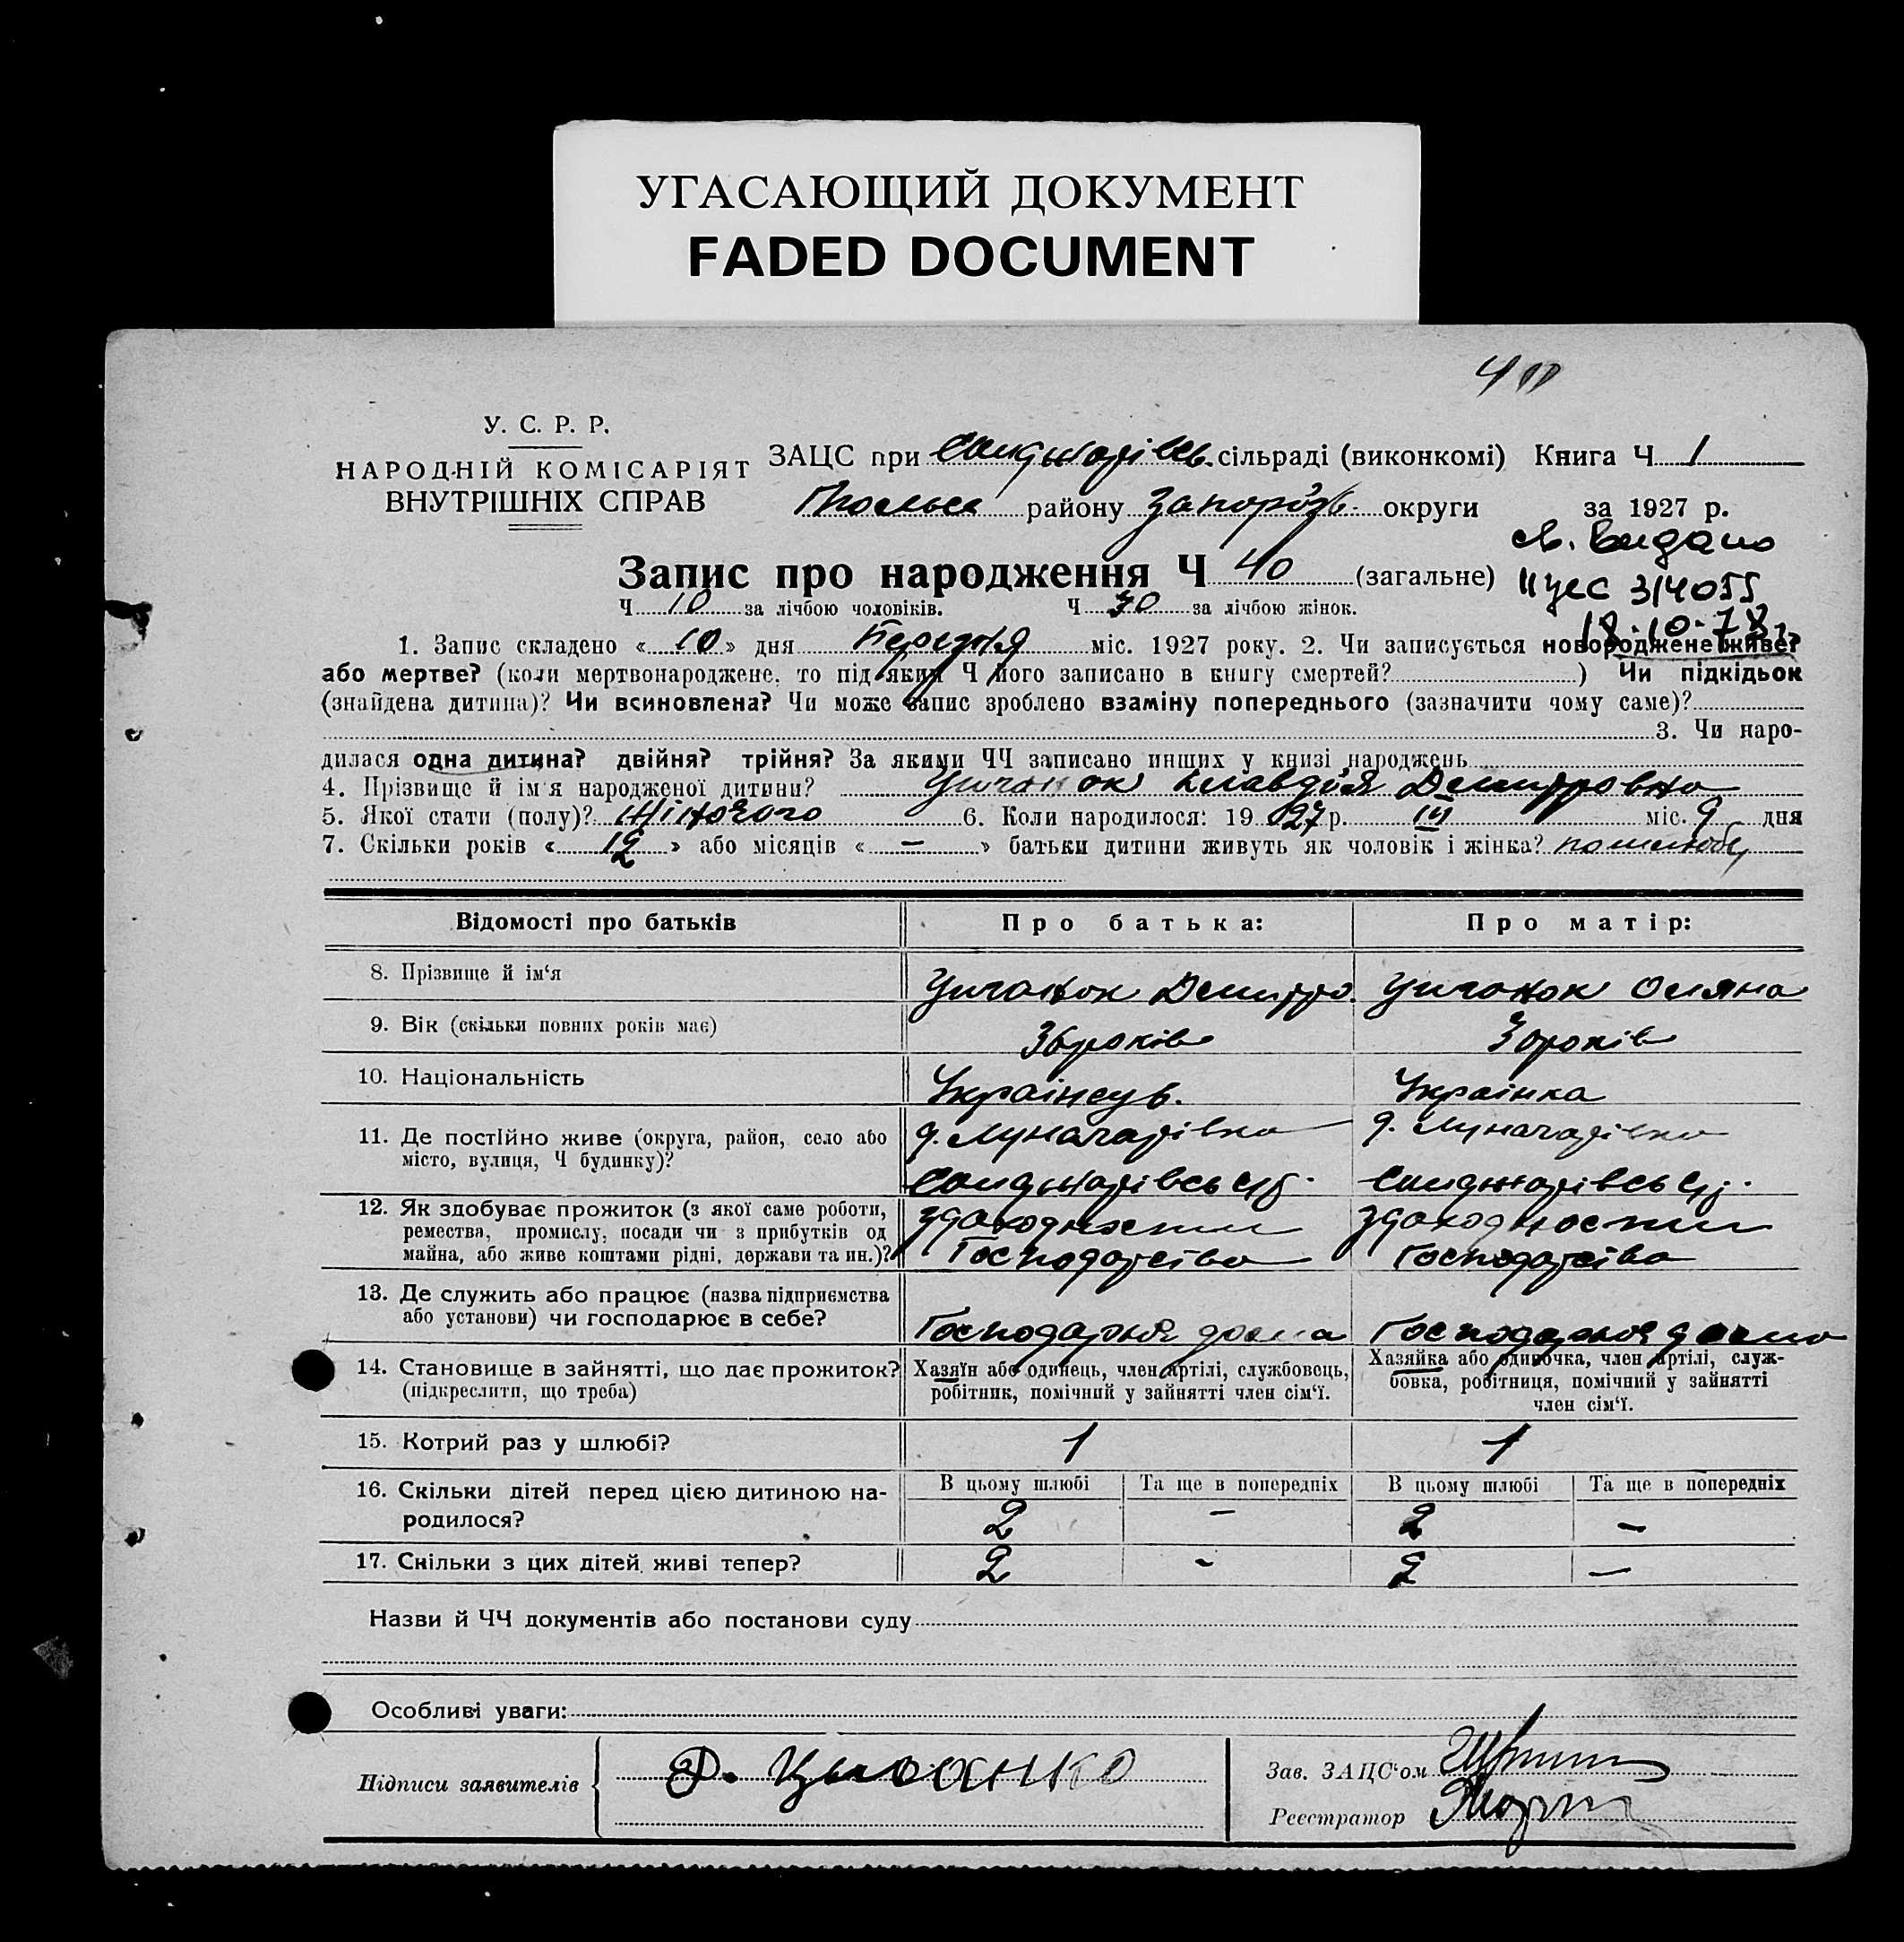 УГАСАЮЩИЙ ДОКУМЕНТ
FADED DOCUMENT
У. С. Р. Р.
НАРОДНІЙ КОМІСАРІЯТ
ВНУТРІШНІХ СПРАВ
ЗАЦС при сільраді (виконкомі) Книга Ч 1
району Запорізь. округи за 1927 р.
св. видано
Запис про народження Ч 40 (загальне)
ІІ ЖС 314055
Ч 10 за лічбою чоловіків. Ч 30 за лічбою жінок.
18.10.78
1. Запис складено « 10 » дня міс. 1927 року. 2. Чи записується новороджене живе?
або мертве? (коли мертвонароджене, то під яким Ч його записано в книгу смертей? ) Чи підкідьок
(знайдена дитина)? Чи всиновлена? Чи може запис зроблено взаміну попереднього (зазначити чому саме)?
3. Чи наро-
дилася одна дитина? двійня? трійня? За якими ЧЧ записано инших у книзі народжень
4. Прізвище й ім'я народженої дитини? Циганок Клавдія Демитровна
5. Якої стати (полу)? Жіночого 6. Коли народилося: 1927 р. III міс. 9 дня
7. Скільки років « 12 » або місяців « — » батьки дитини живуть як чоловік і жінка? по шлюбу
Відомості про батьків Про батька: Про матір:
8. Прізвище й ім'я Циганок Демитро. Циганок Оляна
9. Вік (скільки повних років має) 36 років 30 років
10. Національність Українка
11. Де постійно живе (округа, район, село або місто, вулиця, Ч будинку)? д. Луначарівка д. Луначарівка
12. Як здобуває прожиток (з якої саме роботи, ремества, промислу, посади чи з прибутків од майна, або живе коштами рідні, держави та ин.)? здоходности Господарства здоходности Господарства
13. Де служить або працює (назва підприємства або установи) чи господарює в себе? Господарює дома Господарює дома
14. Становище в зайнятті, що дає прожиток? (підкреслити, що треба) Хазяїн або одинець, член артілі, службовець, робітник, помічний у зайнятті член сім'ї. Хазяйка або одиночка, член артілі, служ-бовка, робітниця, помічний у зайнятті член сім'ї.
15. Котрий раз у шлюбі? 1 1
16. Скільки дітей перед цією дитиною на-родилося? В цьому шлюбі Та ще в попередніх В цьому шлюбі Та ще в попередніх
2 – 2 –
17. Скільки з цих дітей живі тепер? 2 - 2 —
Назви й ЧЧ документів або постанови суду
Особливі уваги:
Підписи заявителів Д. Цыганко
Зав. ЗАЦС'ом
Реєстратор